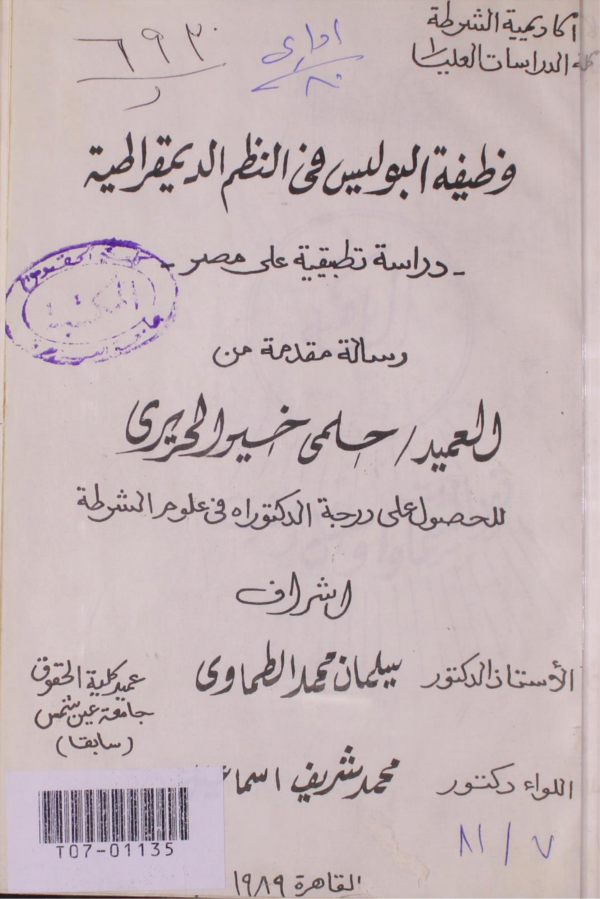 أكاديمية الشرطة
كلية الدراسات العليا
٦٩٣٠
وظيفة البوليس فى النظم الديمقراطية
- دراسة تطبيقية على مصر -
المكتبة
رسالة مقدمة من
العميد / حلمى خير الحريرى
للحصول على درجة الدكتوراه فى علوم الشرطة
اشراف
الأستاذ الدكتور سليمان محمد الطماوى
عميد كلية الحقوق
جامعة عين شمس
(سابقا)
اللواء دكتور محمد شريف اسما
T07-01135
القاهرة ١٩٨٩